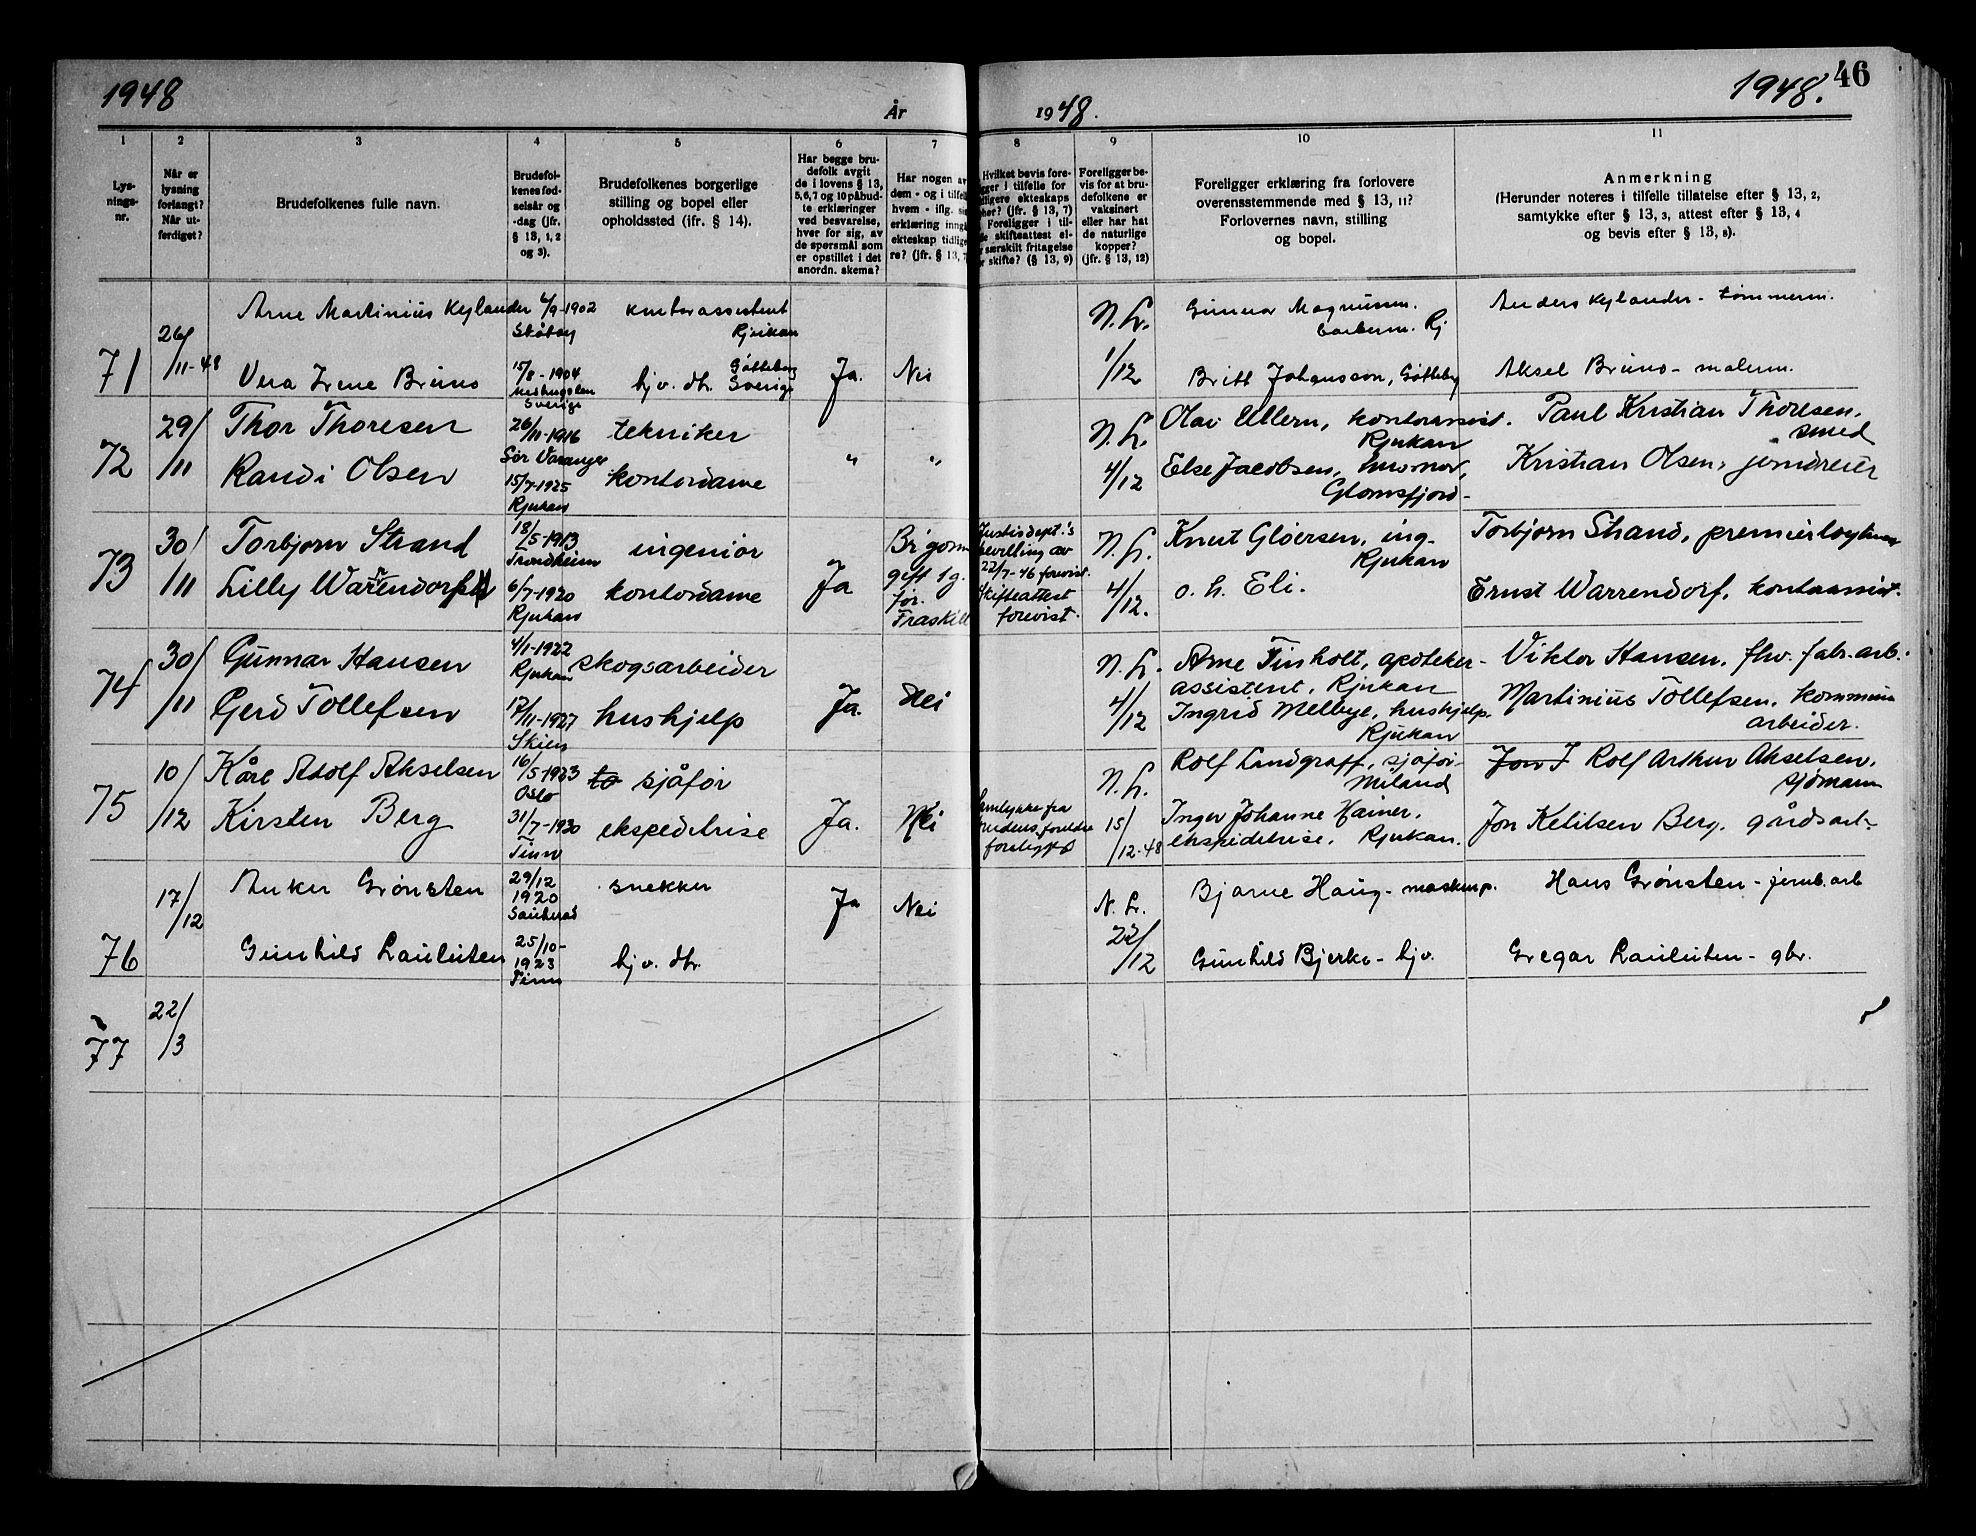 1948
År
1948.
1948.
46
1
2
3
4
5
6
7
8
9
10
11
Lys-
nings-
nr.
Når er
lysning
forlangt?
Når ut-
ferdiget?
Brudefolkenes fulle navn.
Brudefol-
kenes fød-
selsår og
-dag (jfr.
§ 13, 1, 2
og 3).
Brudefolkenes borgerlige
stilling og bopel eller
opholdssted (ifr. § 14).
Har begge bru-
defolk avgit
de i lovens § 13,
5,6,7 og 10 påbud-
te erklæringer
ved besvarelse,
hver for sig, av
de spørsmål som
er opstillet i det
anordn. skema?
Har nogen av
dem - og i tilfell
hvem - iflg. si
erklæring inng
ekteskap tidlige
re? (jfr. § 13, 7
Hvilket bevis fore-
gger i tilfelle for
dligere ekteskaps
hør? (jfr. § 13, 7)
Foreligger i til-
le skifteattest el-
r særskilt fritagelse
r skifte? (§ 13, 9)
Foreligger be-
vis for at bru-
defolkene er
vaksinert
eller har hat
de naturlige
kopper?
(jfr. § 13, 12)
Foreligger erklæring fra forlovere
overensstemmende med § 13, 11?
Forlovernes navn, stilling
og bopel.
Anmerkning
(Herunder noteres i tilfelle tillatelse efter § 13, 2,
samtykke efter § 13, 3, attest efter § 13, 4
og bevis efter § 13, 8).
71
26/11-48
Arne Martinius Kylander
4/9-1902
Skåtøy
kontorassistent
Rjukan
Vera Irene Bruno
15/8-1904
Sverige
hjv. dtr.
Gøtteborg
Sverige
Ja.
Nei
N. L.
1/12
Gunnar Magnussen.
Rj
Britt Johansson, Gøtteby
Anders Kylander - tømmerm.
Aksel Bruno - malerm.
72
29/11
Thor Thoresen
26/11-1916
Sør Varanger
tekniker
Randi Olsen
15/7-1925
Rjukan
kontordame
"
"
N. L.
4/12
Olav Ullern, kontorassist.
Rjukan
Else Jacobsen, husmor,
Glomfjord-
Paul Kristian Thoresen,
smed
Kristian Olsen, jerndreier
73
30/11
Torbjørn Strand
18/5-1913
Trondheim
ingeniør
Lilly Warrendorf
6/7-1920
Rjukan
kontordame
Ja
Br'gom
gift 1 g.
før.
Fraskilt
Justisdept.'s
bevilling av
22/7-46 forevist.
Skifteattest
forevist.
N. L.
4/12.
Knut Gløersen, ing-
Rjukan
o. h. Eli.
Torbjørn Strand, premierløytnant
Ernst Warrendorf, kontorassist.
74
30/11
Gunnar Hansen
4/1-1922
Rjukan
skogsarbeider
Gerd Tollefsen
17/11-1927
Skien
hushjelp
Ja.
Nei
N. L.
4/12
Arne Tinholt, apoteker-
assistent, Rjukan
Ingrid Melbye, hushjelp.
Rjukan
Viktor Hansen, fhv. fabr. arb.
Martinius Tollefsen, kommune
arbeider.
75
10/12
Kåre Adolf Akselsen
16/5-1923
Oslo
to sjåfør
Kirsten Berg
31/7-1930
Tinn
ekspeditrise
Ja.
Nei
Samtykke fra
brudens foreldre
foreligger
N. L.
15/12-48
Rolf Landgraff, sjåfør-
Miland
Inger Johanne Hainer,
ekspeditrise, Rjukan.
Jon I Rolf Arthur Akselsen,
sjømann
Jon Ketilsen Berg, gårdsarb.
76
17/12
Anker Grønsten
29/12
1920
Sauherad
snekker
Gunhild Lauluten
25/10-
1923
Tinn
hjv. dtr.
Ja
Nei
N. L.
22/12
Bjarne Haug - maskinp.
Gunhild Bjerke - hjv.
Hans Grønsten - jernb. arb
Gregar Lauluten - gbr.
77
22/3